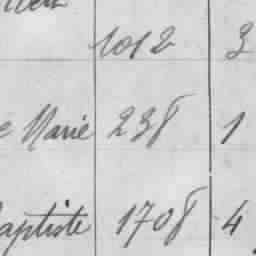 1012 3
e Marie 238 1
aptiste 1708 4